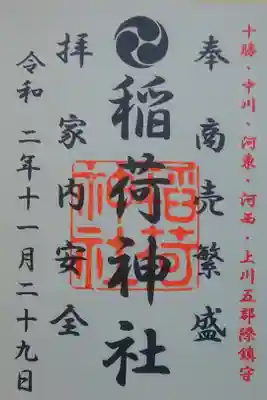 十勝・中川・河東・河西・上川五郡際鎮守
奉 商売繁盛
稲荷神社
稲荷神社
拝 家内安全
令和 二年十一月二十九日